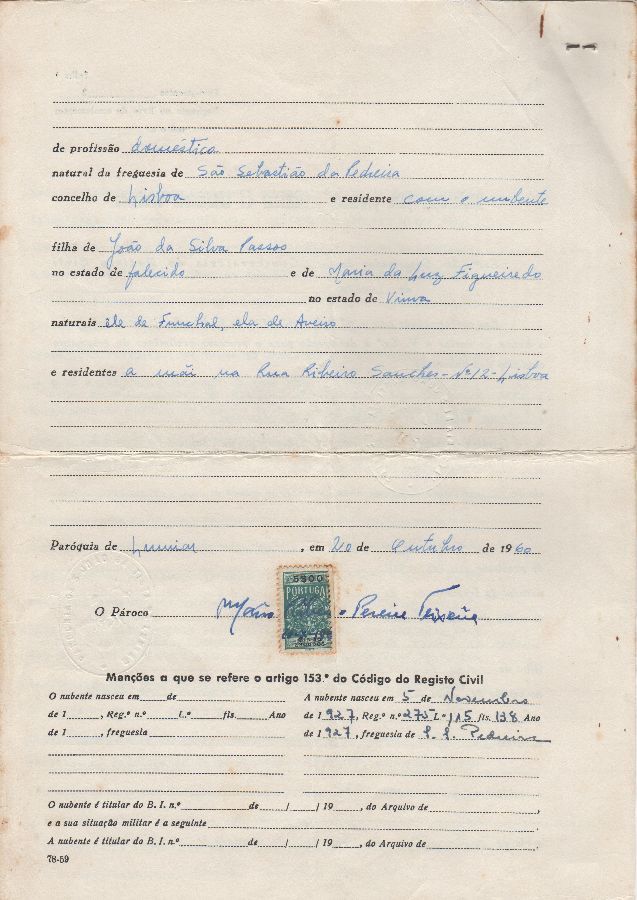 de profissão doméstica
natural da freguesia de São Sebastião da Pedreira
concelho de Lisboa e residente com o nubente
filha de João da Silva Passos
no estado de falecido e de Maria da Luz Figueiredo
no estado de Viuva
naturais ele de Funchal, ela de Aveiro
e residentes a mãi na Rua Ribeiro Sanches - Nº 12 - Lisboa
Paróquia de Lumiar, em 20 de Outubro de 1960
5$00
PORTUGAL
O Pároco Mário Pereira Teixeira
Menções a que se refere o artigo 153.º do Código do Registo Civil
O nubente nasceu em de
de 1 , Reg.º n.º L.º fls. Ano
de 1 , freguesia
A nubente nasceu em 5 de Novembro
de 1927, Reg.º n.º 275 L.º 115 fls. 138 Ano
de 1927, freguesia de S. S. Pedreira
O nubente é titular do B. I. n.º de / / 19 , do Arquivo de
e a sua situação militar é a seguinte
A nubente é titular do B. I. n.º de / / 19 , do Arquivo de
78-59